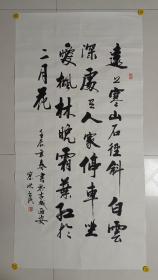 遠上寒山石徑斜白雲
深處有人家停車坐
愛楓林晚霜葉紅於
二月花
壬辰春書於古城西安